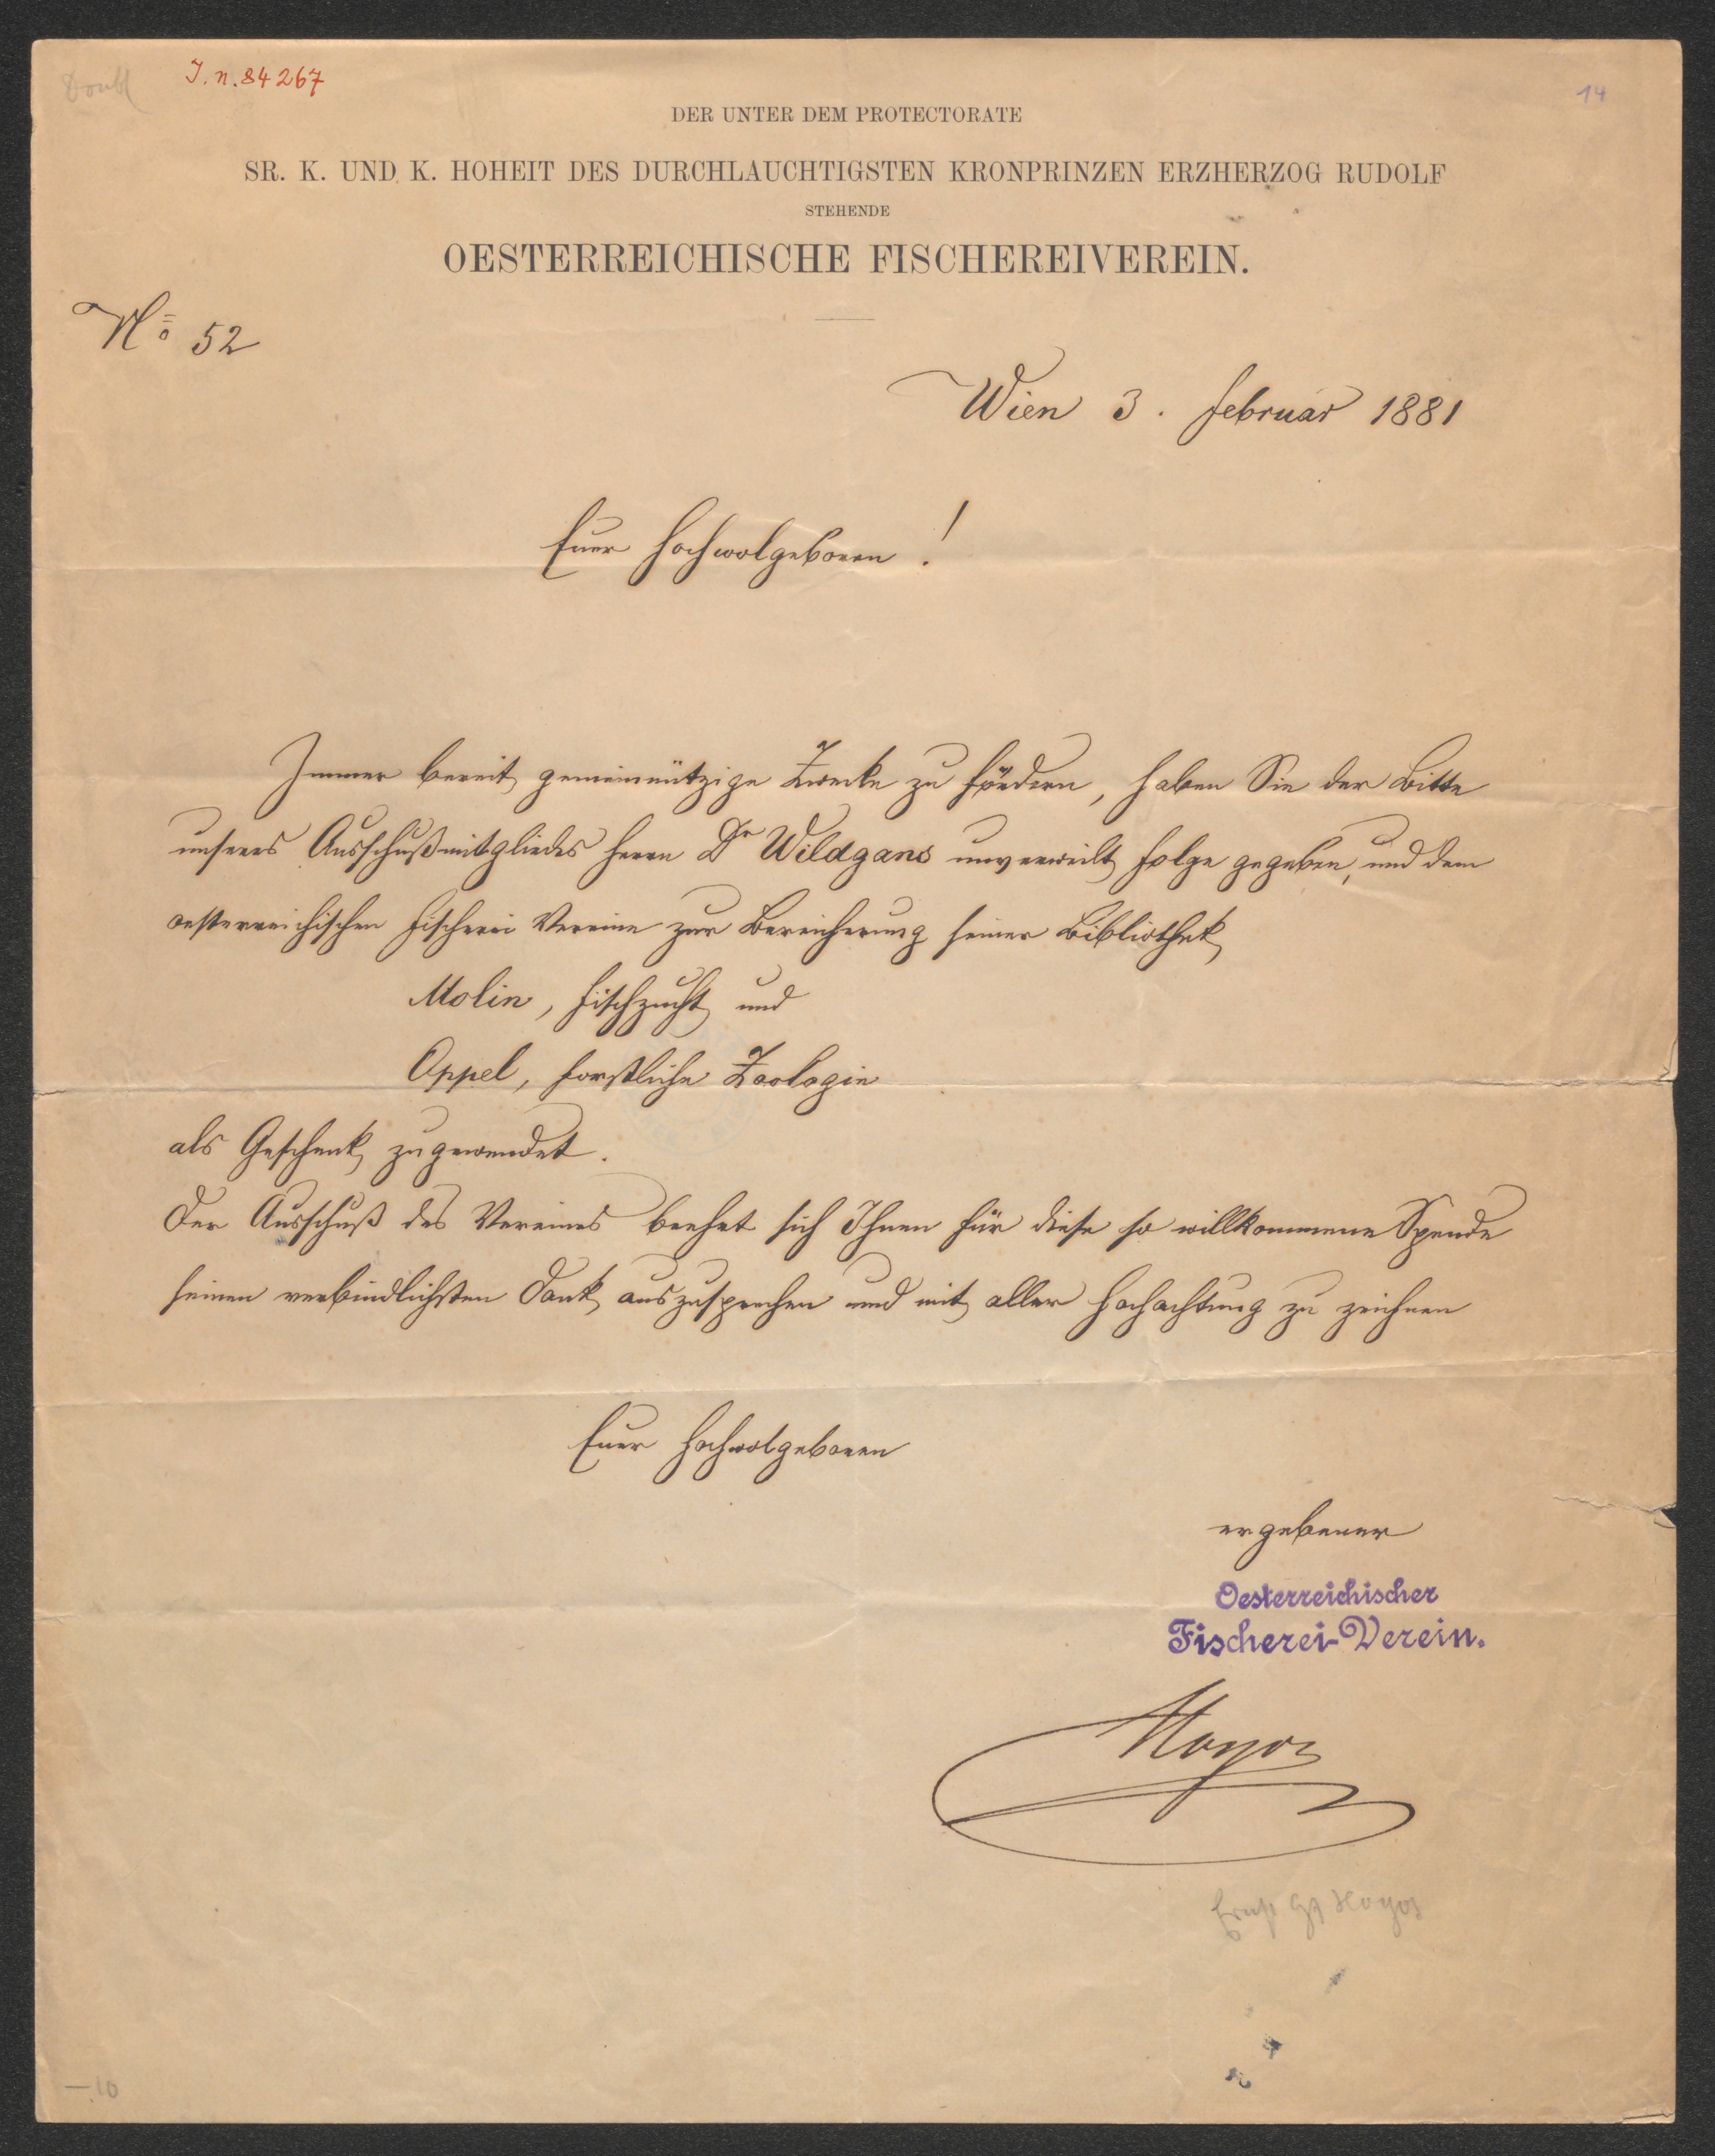 Doubl
I.n.84267
14
DER UNTER DEM PROTECTORATE
SR. K. UND K. HOHEIT DES DURCHLAUCHTIGSTEN KRONPRINZEN ERZHERZOG RUDOLF
STEHENDE
OESTERREICHISCHE FISCHEREIVEREIN.
No 52
Wien 3. Februar 1881
Euer Hochwolgeboren!
Immer bereit gemeinnützige Zwecke zu fördern, haben Sie der Bitte
unseres Ausschußmitgliedes Herrn Dr Wildgans unverweilt Folge gegeben, und dem
oesterreichischen Fischerei Vereine zur Bereicherung seiner Bibliothek
Molin, Fischzucht und
Oppel, forstliche Zoologie
als Geschenk zugewendet.
Der Ausschuß des Vereines beehrt sich Ihnen für diese so willkommene Spende
seinen verbindlichsten Dank auszusprechen und mit aller Hochachtung zu zeichnen
Euer Hochwolgeboren
ergebener
Oesterreichischer
Fischerei-Verein.
Hoyos
Ernst Gf Hoyos
—10